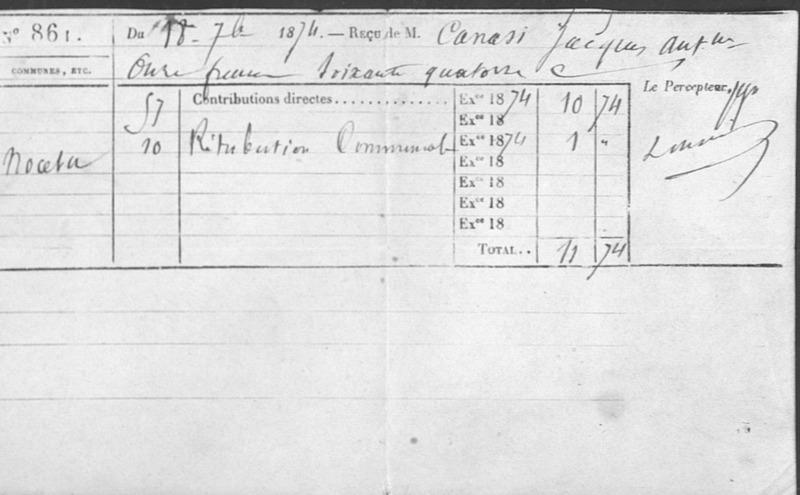 N° 861. Du 18 7bre 1874. — Reçu de M. Canasi Jacques
COMMUNES, ETC. Onze francs Soixante quatorze Le Percepteur.
57 Contributions directes.............. Exce 1874 10 74
Exce 18
Noceta 10 Rétribution Communale Exce 1874 1 "
Exce 18
Exce 18
Exce 18
Exce 18
TOTAL.. 11 74